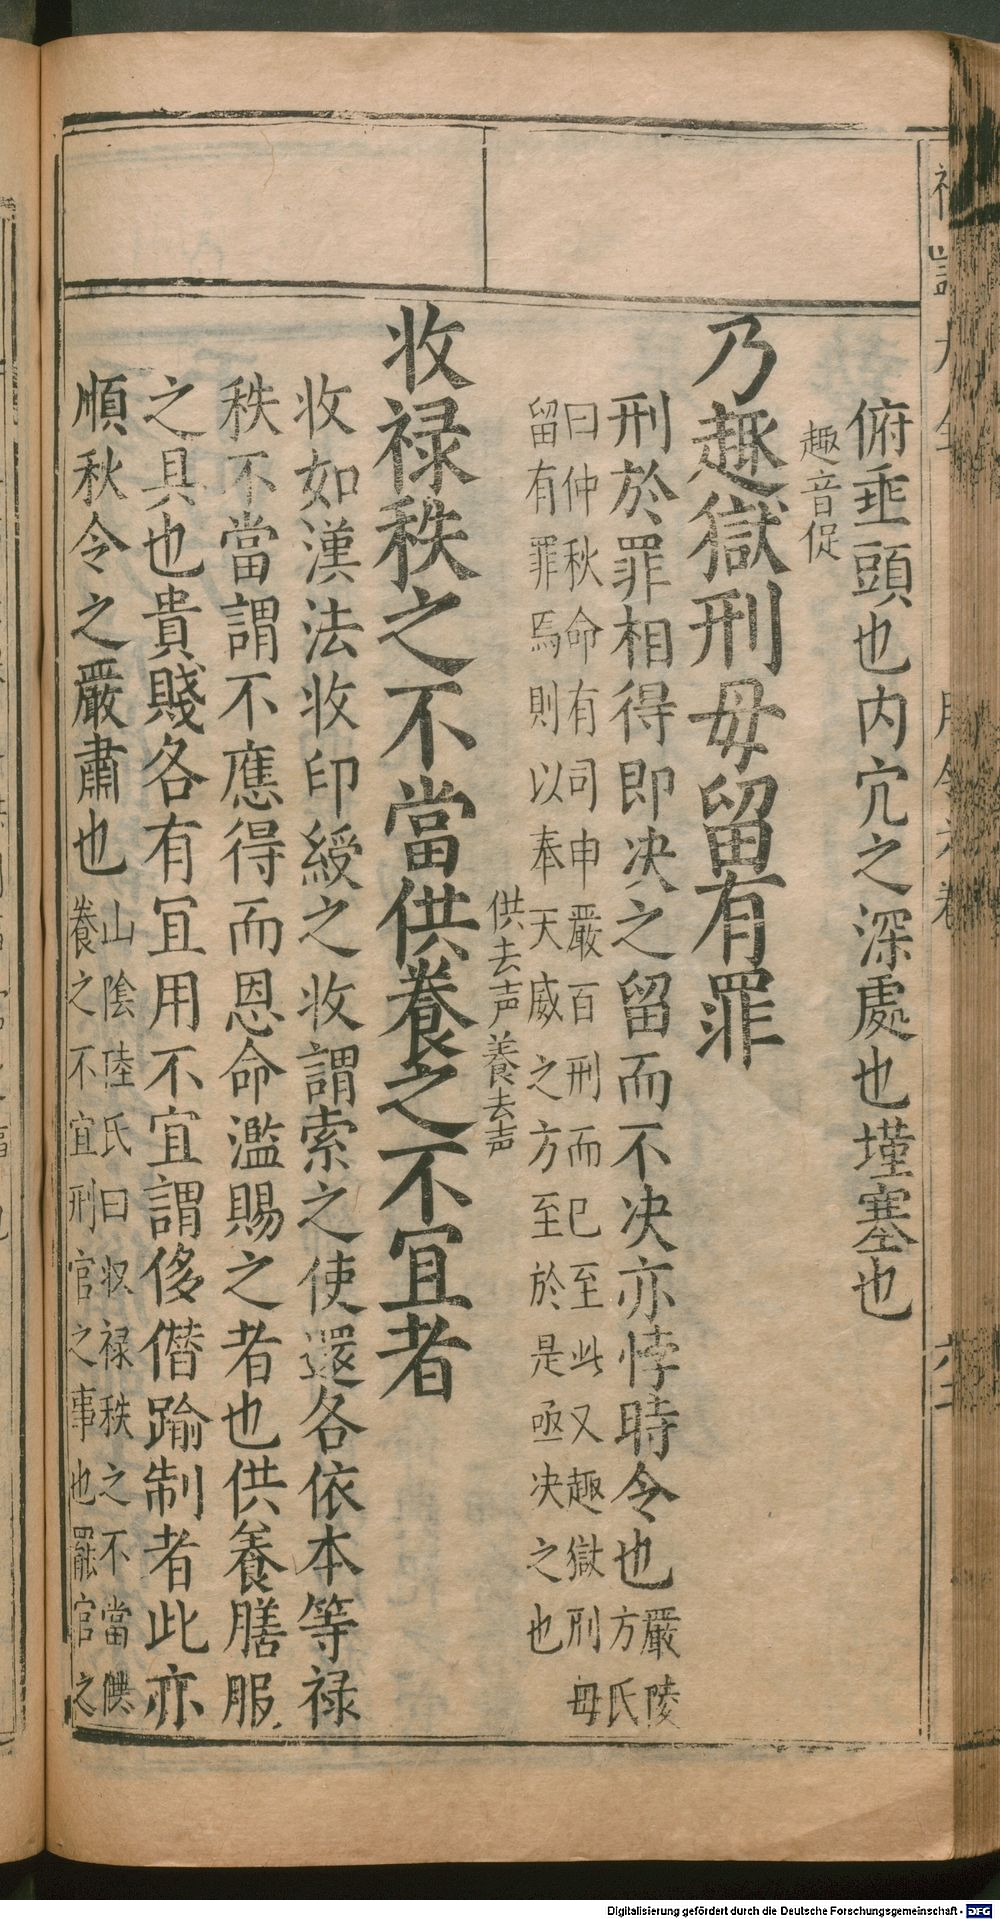 俯垂頭也内穴之深處也墐塞也
趣音促
乃趣獄刑毋留有罪
刑於罪相得即决之留而不决亦悖時令也嚴陵
方氏
曰仲秋命有司申嚴百刑而已至此又趣獄刑毋
留有罪焉則以奉天威之方至於是亟决之也
供去声養去声
收禄秩之不當供養之不宜者
收如漢法收印綬之收謂索之使還各依本等禄
秩不當謂不應得而恩命濫賜之者也供養膳服
之具也貴賤各有宜用不宜謂侈僭踰制者此亦
順秋令之嚴肅也山陰陸氏曰収禄秩之不當供
養之不宜刑官之事也罷官之
Digitalisierung gefördert durch die Deutsche Forschungsgemeinschaft - DFG